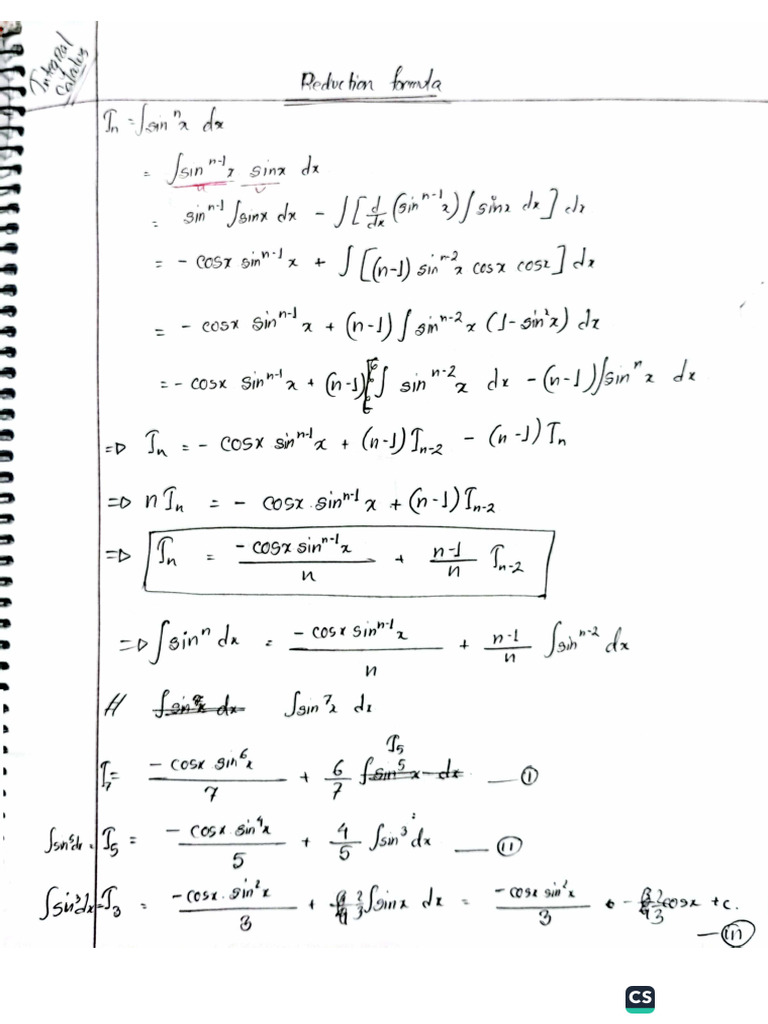 Integral
Calculus
Reduction formula
Iₙ = ∫sinⁿx dx
= ∫sinⁿ⁻¹x sinx dx
u v
= sinⁿ⁻¹ ∫sinx dx - ∫[d/dx (sinⁿ⁻¹x) ∫sinx dx] dx
= - cosx sinⁿ⁻¹x + ∫[(n-1) sinⁿ⁻²x cosx cosx] dx
= - cosx sinⁿ⁻¹x + (n-1) ∫sinⁿ⁻²x (1-sin²x) dx
= - cosx sinⁿ⁻¹x + (n-1) ∫ sinⁿ⁻²x dx - (n-1) ∫sinⁿx dx
⇒ Iₙ = - cosx sinⁿ⁻¹x + (n-1) Iₙ₋₂ - (n-1) Iₙ
⇒ n Iₙ = - cosx. sinⁿ⁻¹x + (n-1) Iₙ₋₂
⇒ Iₙ = -cosx sinⁿ⁻¹x / n + n-1 / n Iₙ₋₂
⇒ ∫sinⁿ dx = - cosx sinⁿ⁻¹x / n + n-1 / n ∫sinⁿ⁻² dx
// ∫sin⁷x dx
I₇ = - cosx sin⁶x / 7 + 6/7 I₅ — (i)
∫sin⁵dx = I₅ = - cosx. sin⁴x / 5 + 4/5 ∫sin³dx — (ii)
∫sin³dx = I₃ = -cosx. sin²x / 3 + 2/3 ∫sinx dx = -cosx sin²x / 3 - 2/3 cosx + c.
— (iii)
CS